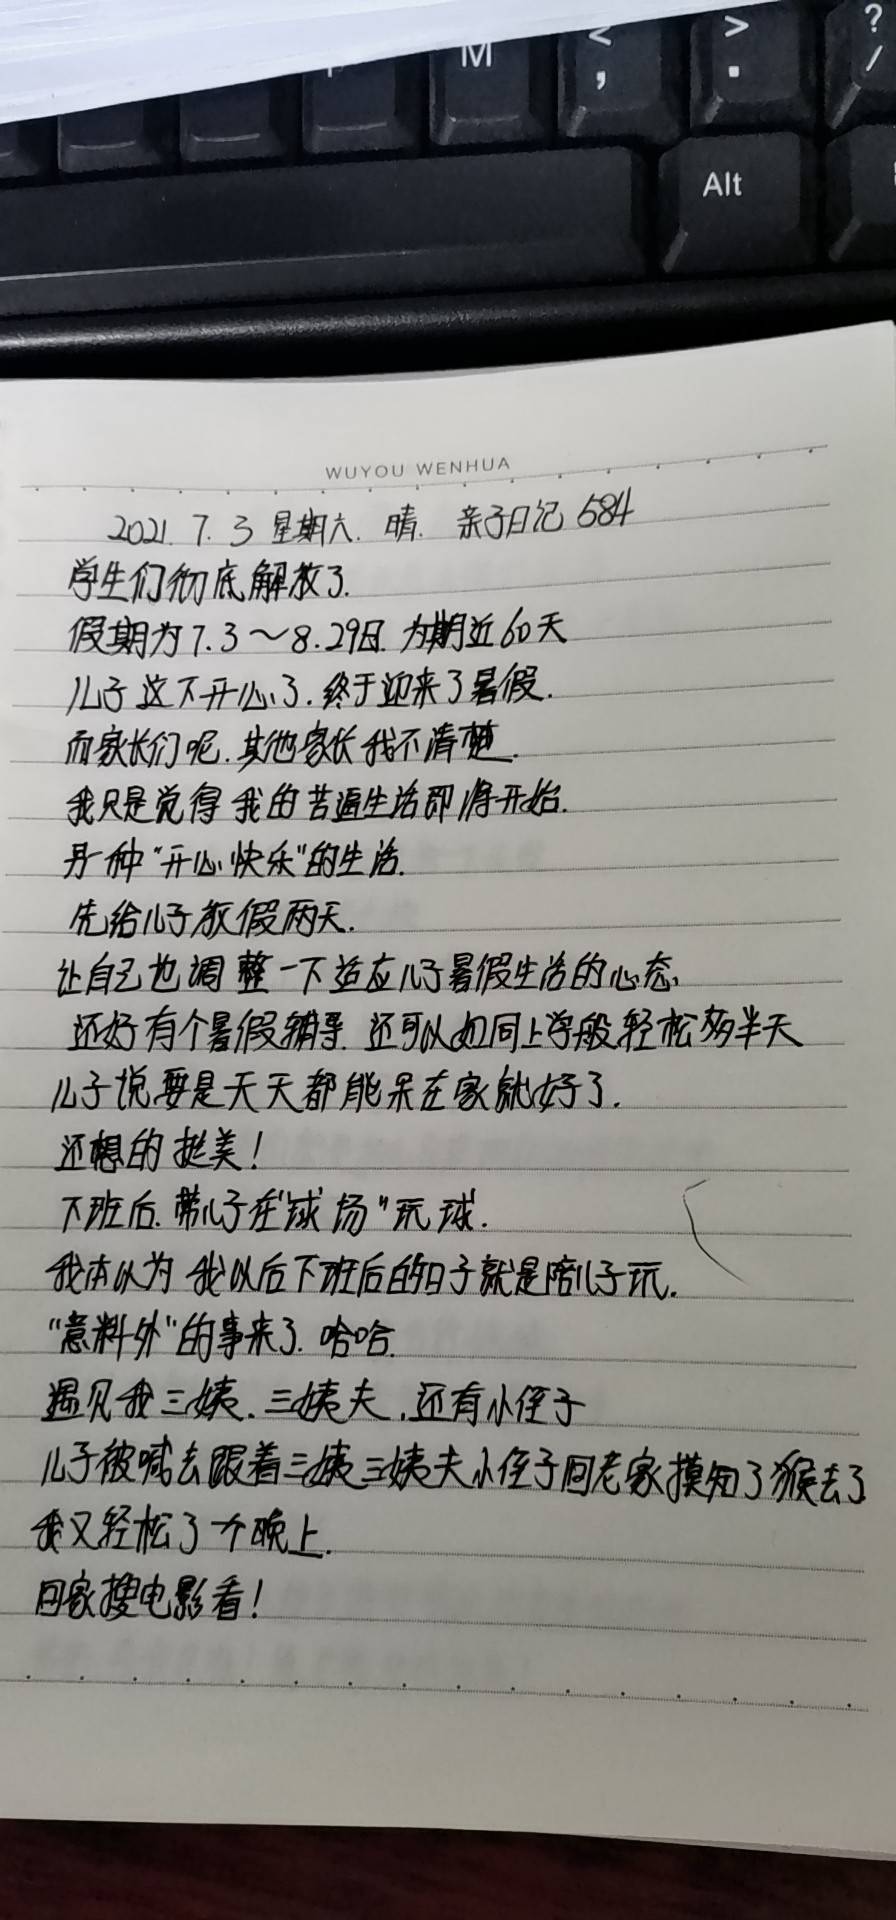 M
<
,
>
.
?
/
Alt
WUYOU WENHUA
2021.7.3 星期六. 晴. 亲子日记 584
学生们彻底解放了.
假期为7.3～8.29日.为期近60天
儿子这下开心了.终于迎来了暑假.
而家长们呢.其他家长我不清楚.
我只是觉得我的苦逼生活即将开始.
另一种"开心快乐"的生活.
先给儿子放假两天.
让自己也调整一下适应儿子暑假生活的心态.
还好有个暑假辅导.还可以如同上学般轻松多半天
儿子说要是天天都能呆在家就好了.
还想的挺美!
下班后.带儿子在"球场"玩球.
我本以为我以后下班后的日子就是陪儿子玩.
"意料外"的事来了.哈哈.
遇见我三姨.三姨夫.还有小侄子
儿子被喊去跟着三姨三姨夫小侄子回老家摸知了猴去了
我又轻松了一个晚上.
回家搜电影看!